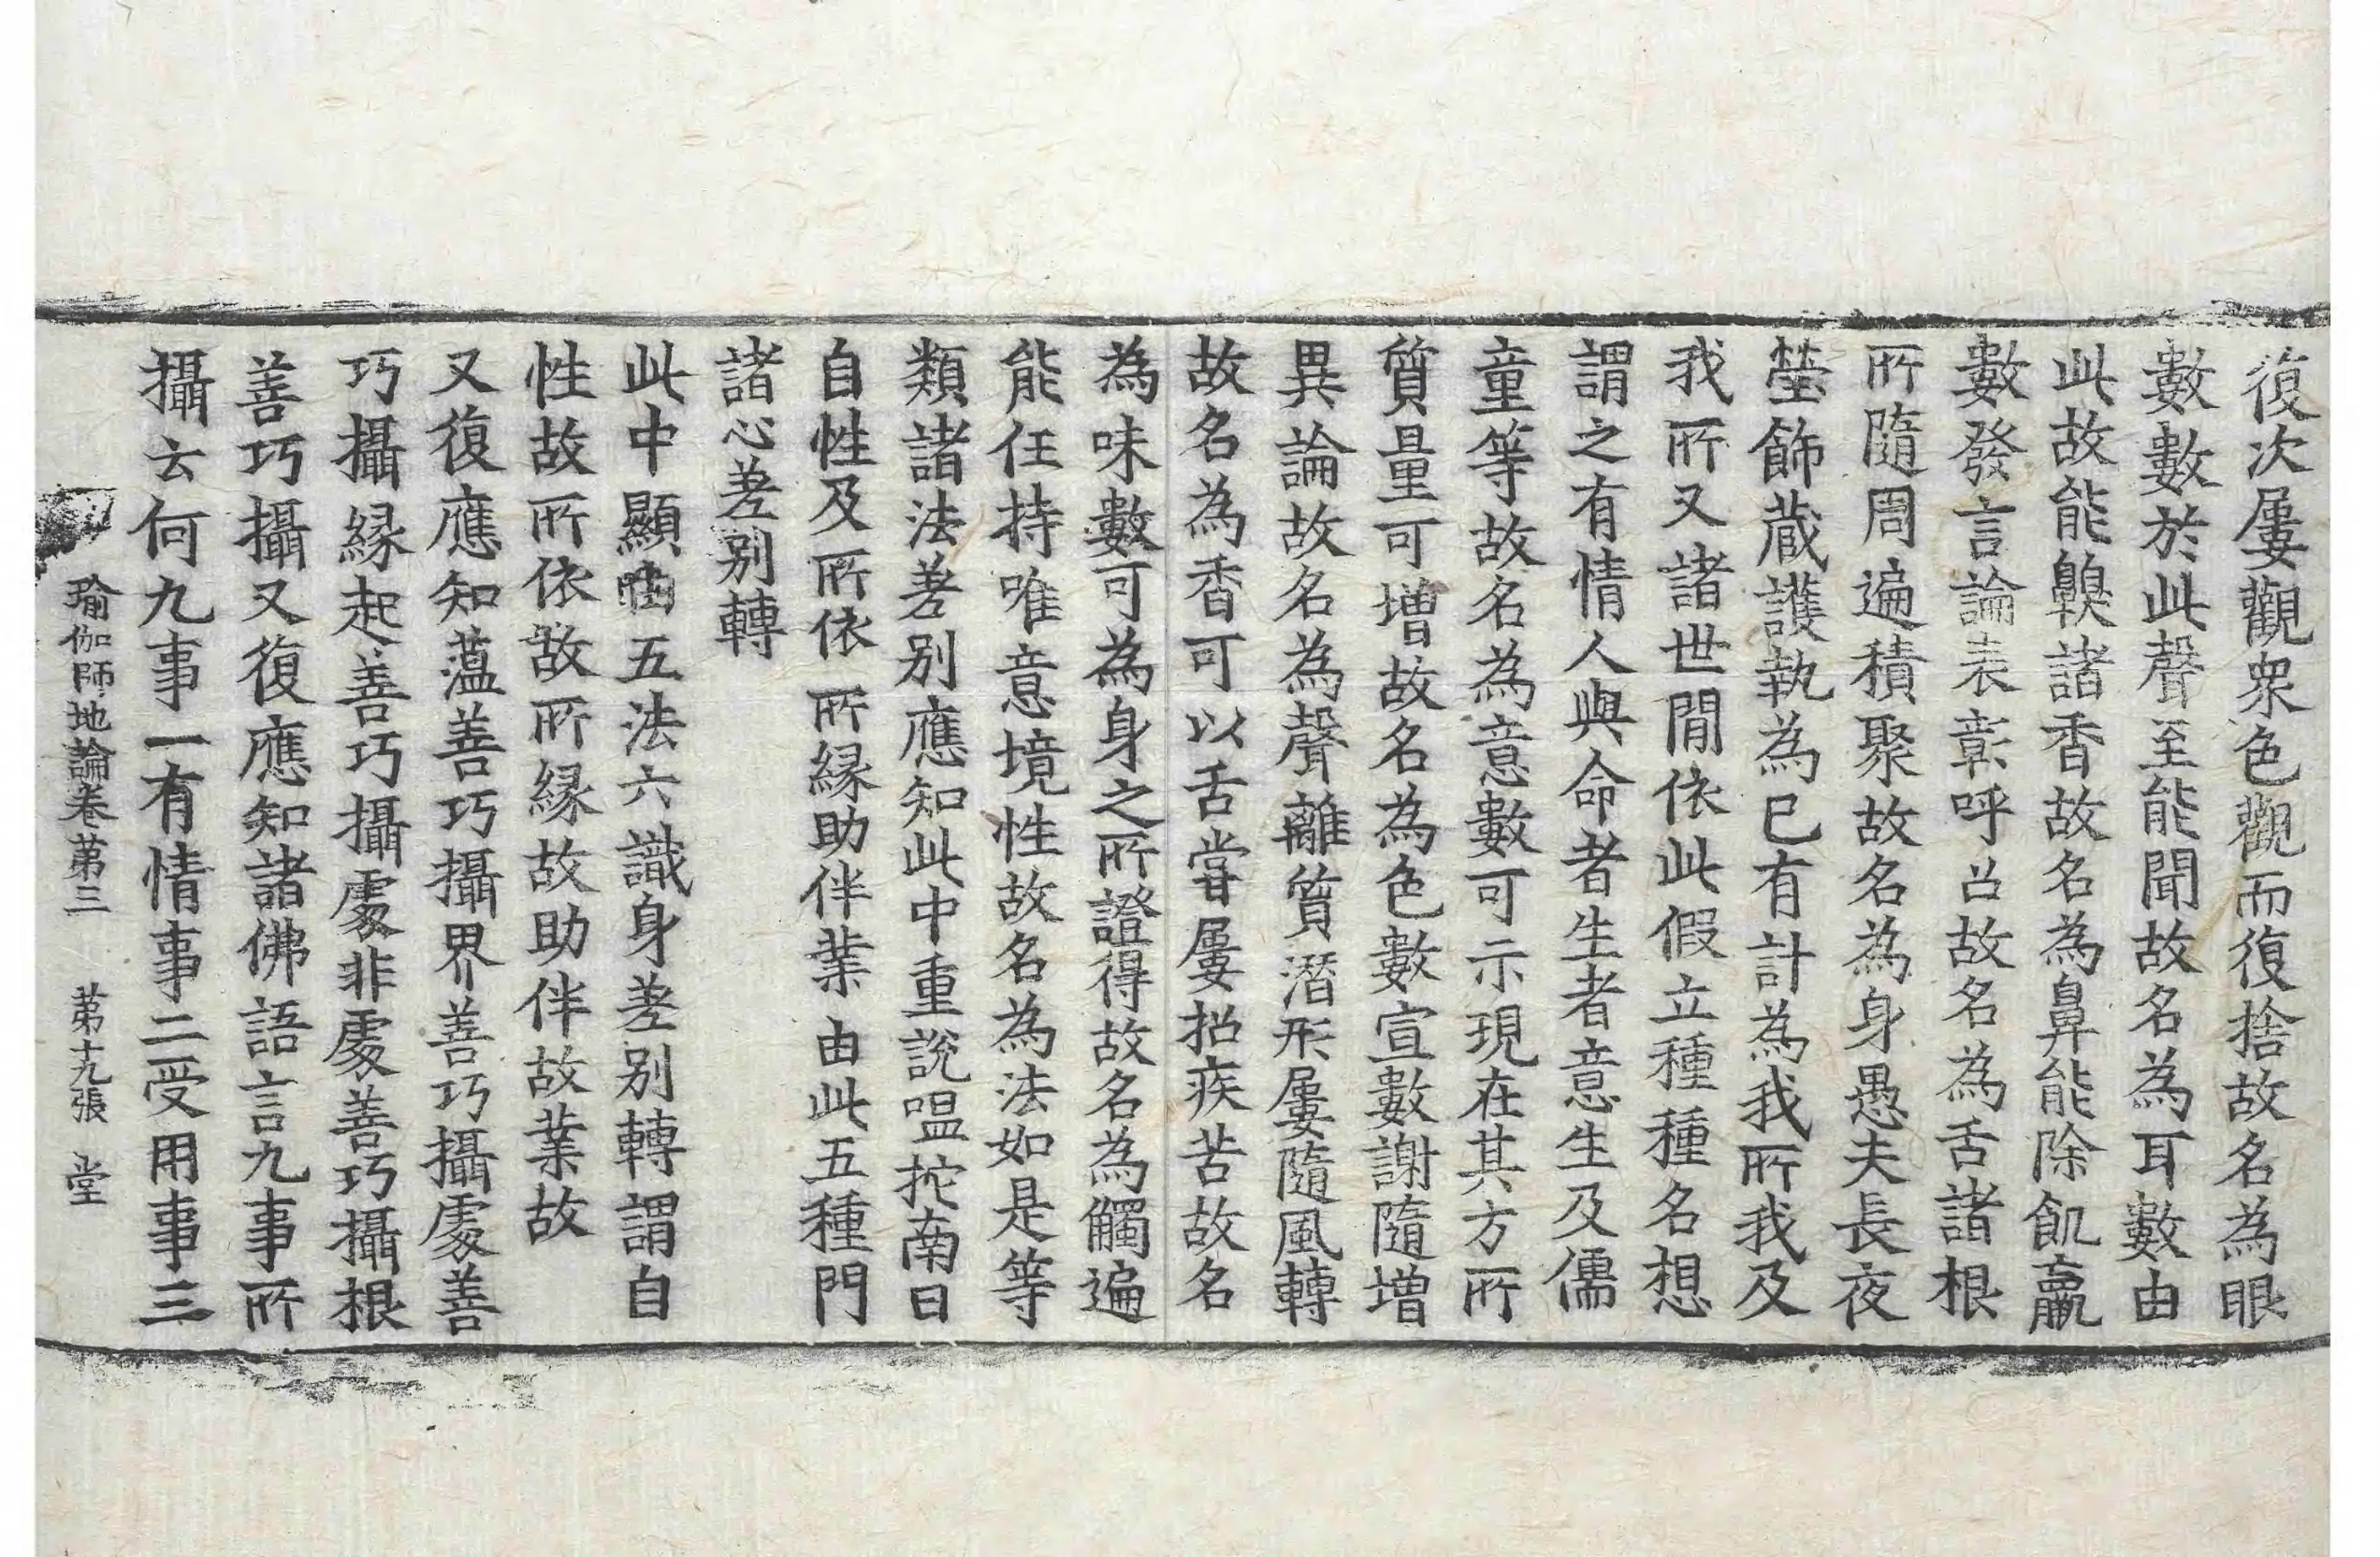 復次屢觀衆色觀而復捨故名為眼
數數於此聲至能聞故名為耳數由
此故能齅諸香故名為鼻能除飢羸
數發言論表彰呼召故名為舌諸根
所隨周遍積聚故名為身愚夫長夜
瑩飾藏護執為已有計為我所我及
我所又諸世閒依此假立種種名想
謂之有情人與命者生者意生及儒
童等故名為意數可示現在其方所
質量可增故名為色數宣數謝隨增
異論故名為聲離質潛形屢隨風轉
故名為香可以舌嘗屢招疾苦故名
為味數可為身之所證得故名為觸遍
能任持唯意境性故名為法如是等
類諸法差别應知此中重說嗢拕南曰
自性及所依 所縁助伴業 由此五種門
諸心差别轉
此中顯由五法六識身差别轉謂自
性故所依故所縁故助伴故業故
又復應知薀善巧攝界善巧攝處善
巧攝縁起善巧攝處非處善巧攝根
善巧攝又復應知諸佛語言九事所
攝云何九事一有情事二受用事三
瑜伽師地論卷第三 第十九張 堂